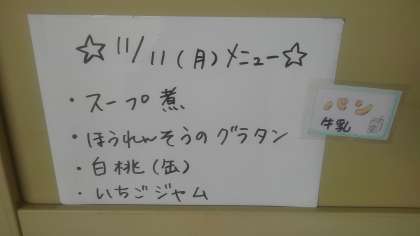 ☆11/11(月)メニュー☆
・スープ煮
・ほうれんそうのグラタン
・白桃(缶)
・いちごジャム
パン
牛乳